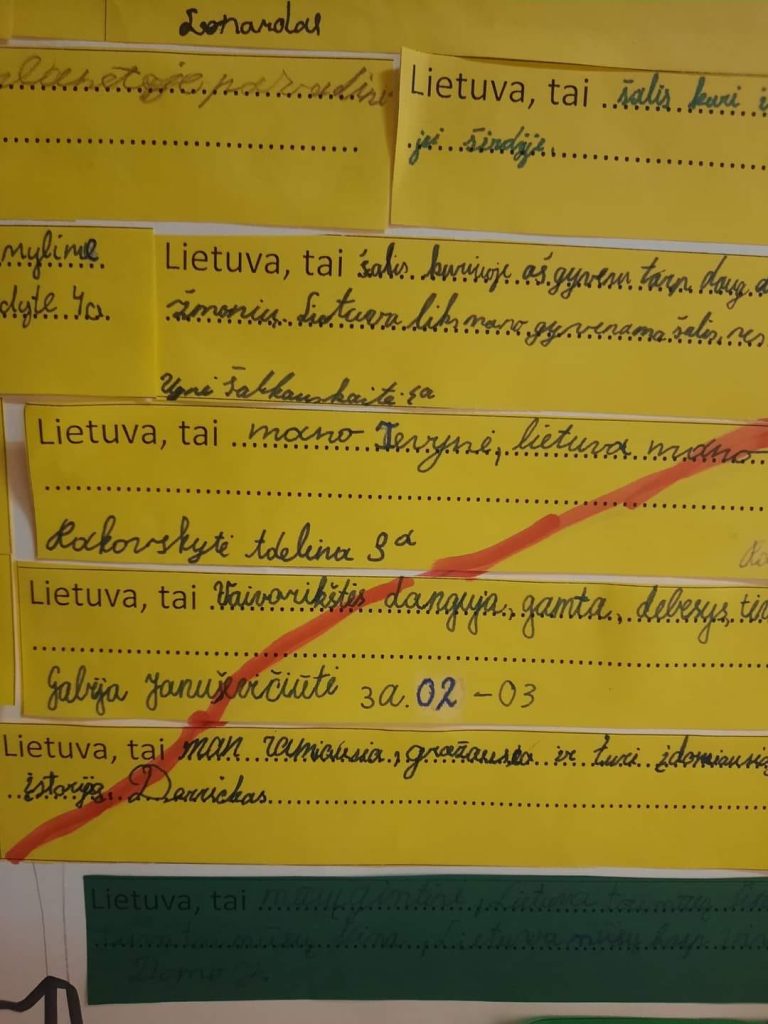 Leonardas
planetoje pavadini
Lietuva, tai šalis kuri i
jei širdyje.
mylime
dytė 4a.
Lietuva, tai šalis kurioje aš gyvenu tarp daug
žmonių. Lietuva liks mano gyvenama šalis nes
Ugnė Šalkauskaitė
Lietuva, tai mano Tevynė, lietuva mano
Rakovskytė Adelina 3a
Lietuva, tai Vaivorikštės danguja, gamta, debesys,
Gabija Januševičiūtė 3a. 02-03
Lietuva, tai man ramiausia, gražausia ir turi įdomiausią
istoriją. Derrickas
Lietuva, tai mūsų gimtinė, Lietuva tai mūsų
Lietuva mūsų kaip
Domo